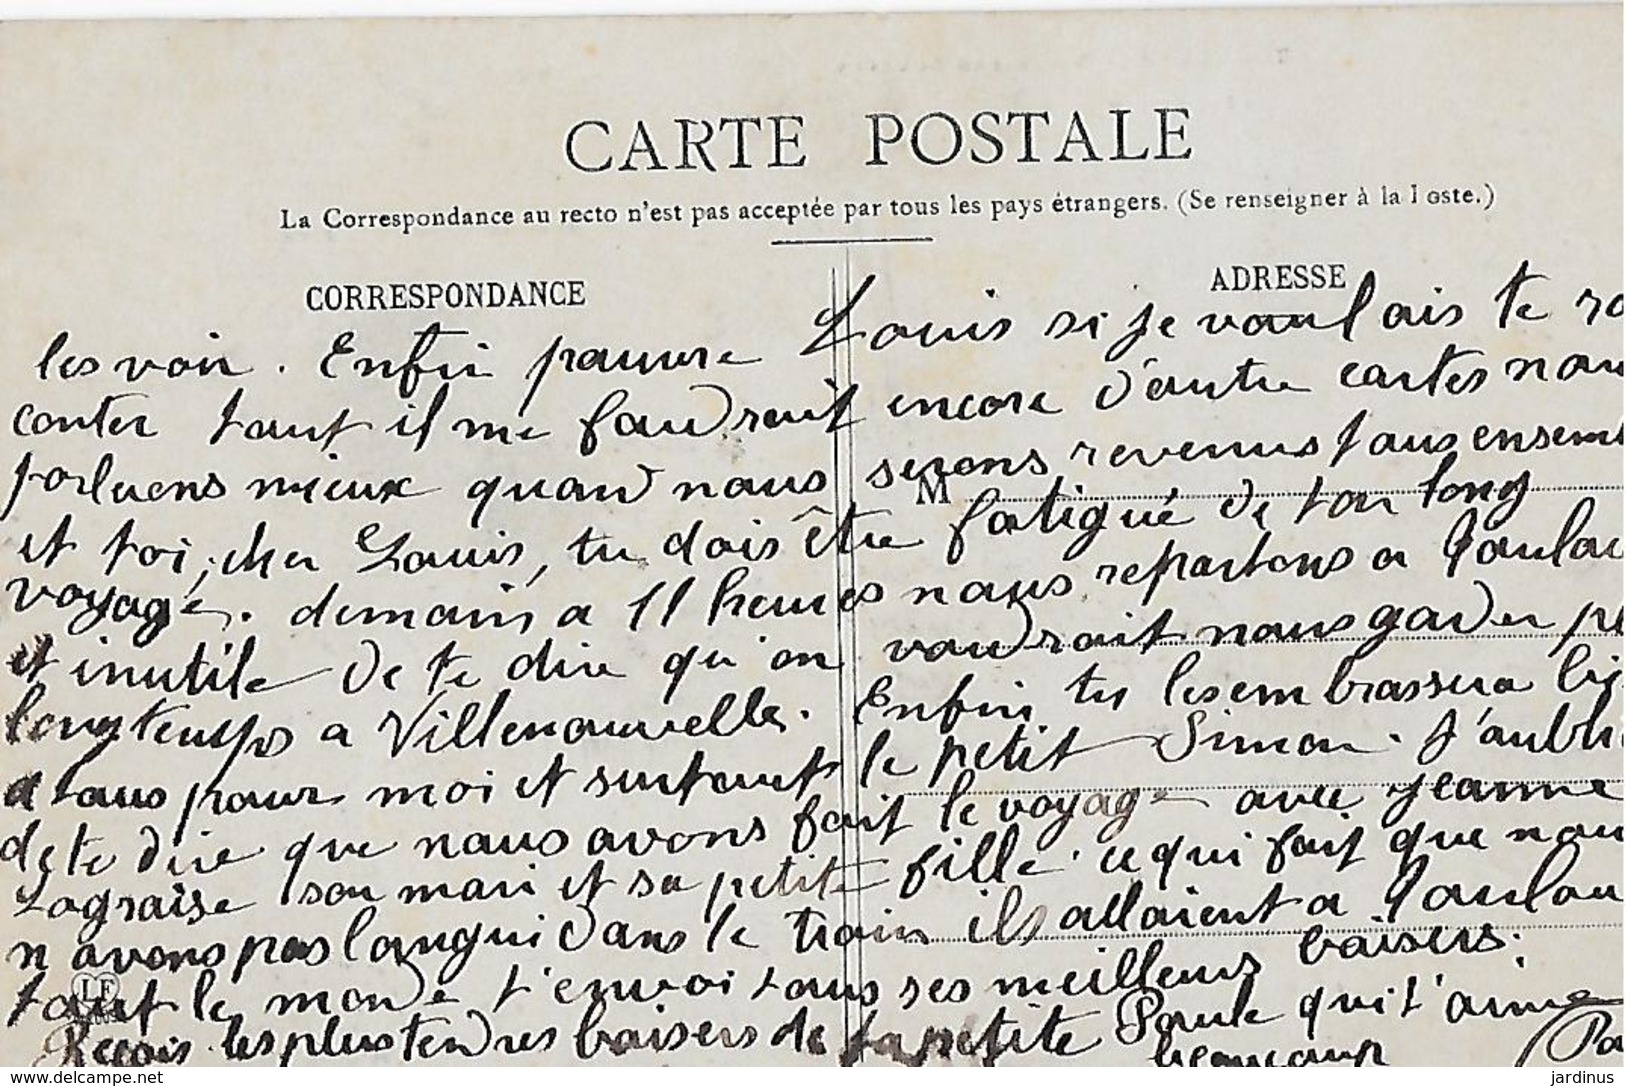 CARTE POSTALE
La Correspondance au recto n'est pas acceptée par tous les pays étrangers. (Se renseigner à la Poste.)
CORRESPONDANCE
ADRESSE
M
les voir. Enfin pauvre Louis si je voulais te ra
conter tout il me faudrait encore d'autre cartes nous
parlerons mieux quand nous serons revenus tous ensem
et toi, cher Louis, tu dois être fatigué de ton long
voyage. demain a 11 heures nous repartons a Toulou
et inutile de te dire qu'on voudrait nous garder pl
longtemps a Villenouvelle. Enfin tu les embrassera bi
a tous pour moi et surtout le petit Simon. J'oubli
de te dire que nous avons fait le voyage avec Jeanne
Lagraise son mari et sa petite fille ce qui fait que nou
n avons pas langui dans le train ils allaient a Toulou
tout le monde t'envoi tous ses meilleurs baisers.
Reçois les plus tendres baisers de ta petite Paule qui t'aime
beaucoup (Pa
LF
delcampe.net
jardinus